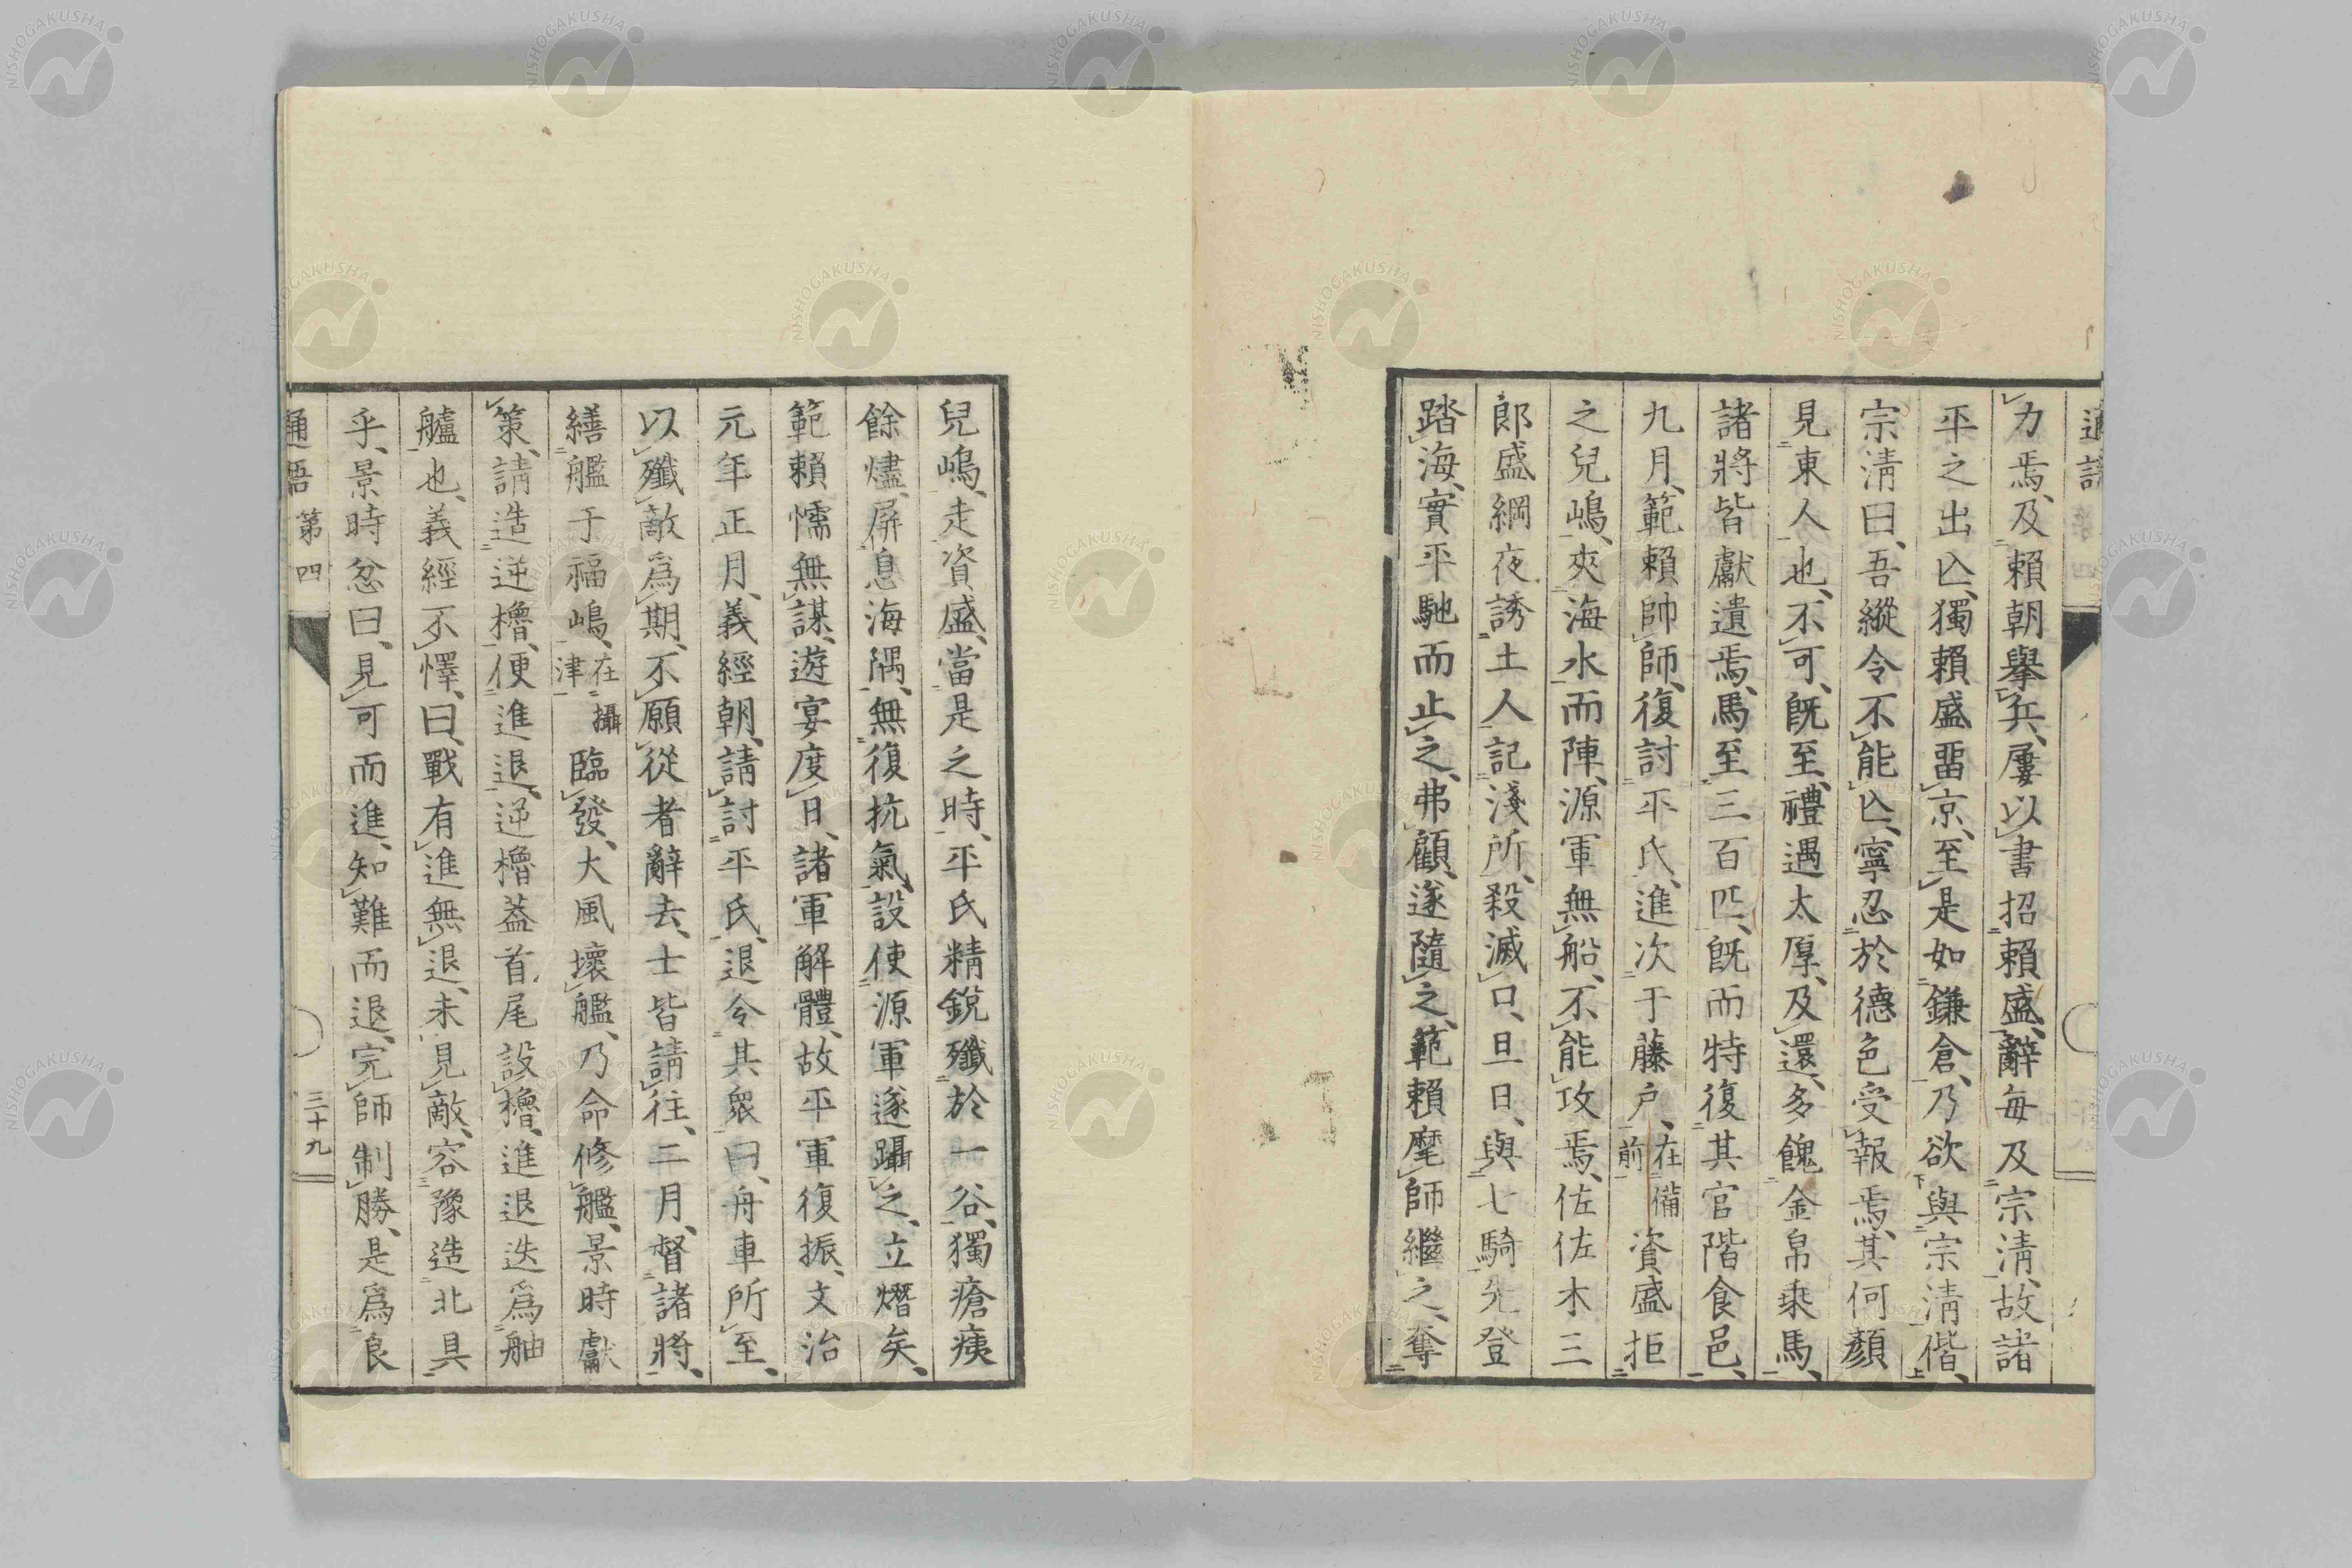 通語
力焉、及賴朝擧兵、屢以書招賴盛、辭每及宗淸、故諸
平之出亡、獨賴盛畱京、至是如鎌倉、乃欲與宗淸偕、
宗淸曰、吾縱令不能亡、寧忍於德色受報焉、其何顏
見東人也、不可、既至、禮遇太厚、及還、多餽金帛乘馬、
諸將皆獻遺焉、馬至三百匹、既而特復其官階食邑、
九月、範賴帥師、復討平氏、進次于藤戶、在備前資盛拒
之兒嶋、夾海水而陣、源軍無船、不能攻焉、佐佐木三
郎盛綱夜誘土人記淺所、殺滅口、旦日、與七騎先登
踏海、實平馳而止之、弗顧、遂隨之、範賴麾師繼之、奪
兒嶋、走資盛、當是之時、平氏精銳殲於一谷、獨瘡痍
餘燼、屏息海隅、無復抗氣、設使源軍遂躡之、立熸矣、
範賴懦無謀、遊宴度日、諸軍解體、故平軍復振、文治
元年正月、義經朝、請討平氏、退令其衆曰、舟車所至、
以殲敵爲期、不願從者辭去、士皆請往、二月、督諸將、
繕艦于福嶋、在攝津臨發、大風壞艦、乃命修艦、景時獻
策、請造逆櫓、便進退、逆櫓蓋首尾設櫓、進退迭爲舳
艫也、義經不懌、曰、戰有進無退、未見敵、容豫造北具
乎、景時忿曰、見可而進、知難而退、完師制勝、是爲良
通語 第四 三十九